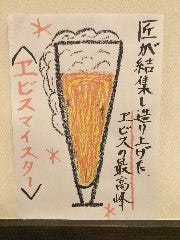 匠が結集し造り上げた
ヱビスの最高峰
<ヱビスマイスター>